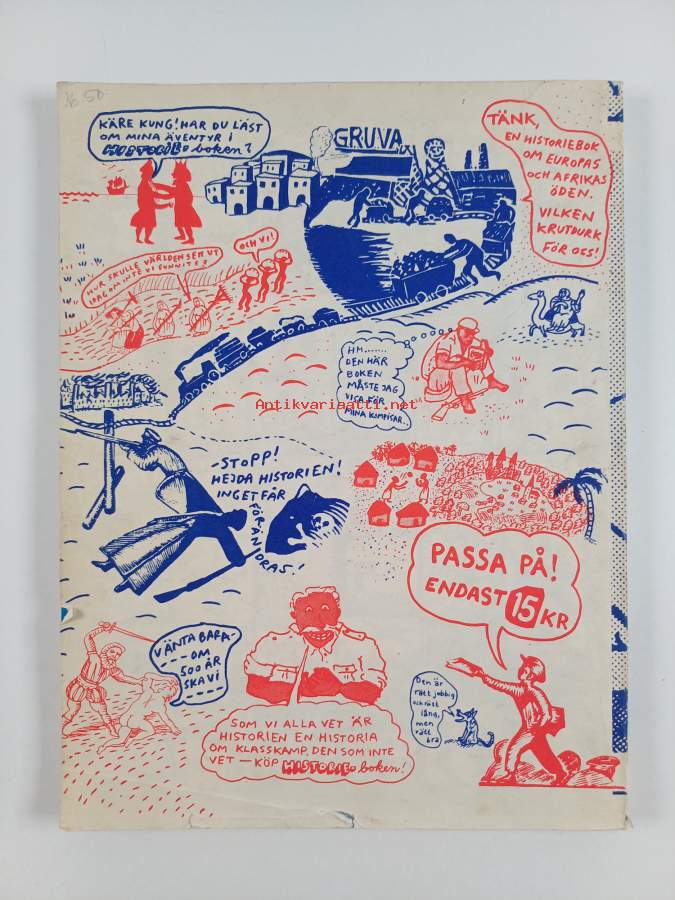 16.50
KÄRE KUNG! HAR DU LÄST
OM MINA ÄVENTYR I
HISTORIEboken?
GRUVAN
TÄNK,
EN HISTORIEBOK
OM EUROPAS
OCH AFRIKAS
ÖDEN.
VILKEN
KRUTDURK
FÖR OSS!
HUR SKULLE VÄRLDEN SETT UT
IDAG OM INTE VI FUNNITS?
OCH VI!
HM.......
DEN HÄR
BOKEN
MÅSTE JAG
VISA FÖR
MINA KOMPISAR..
Antikvariaatti.net
-STOPP!
HEJDA HISTORIEN!
INGET FÅR
FÖRÄNDRAS!
PASSA PÅ!
ENDAST 15 KR
VÄNTA BARA-
OM
500 ÅR
SKA VI
Den är
rätt jobbig
och rätt
lång,
men
rätt
bra
SOM VI ALLA VET ÄR
HISTORIEN EN HISTORIA
OM KLASSKAMP. DEN SOM INTE
VET — KÖP HISTORIEboken!